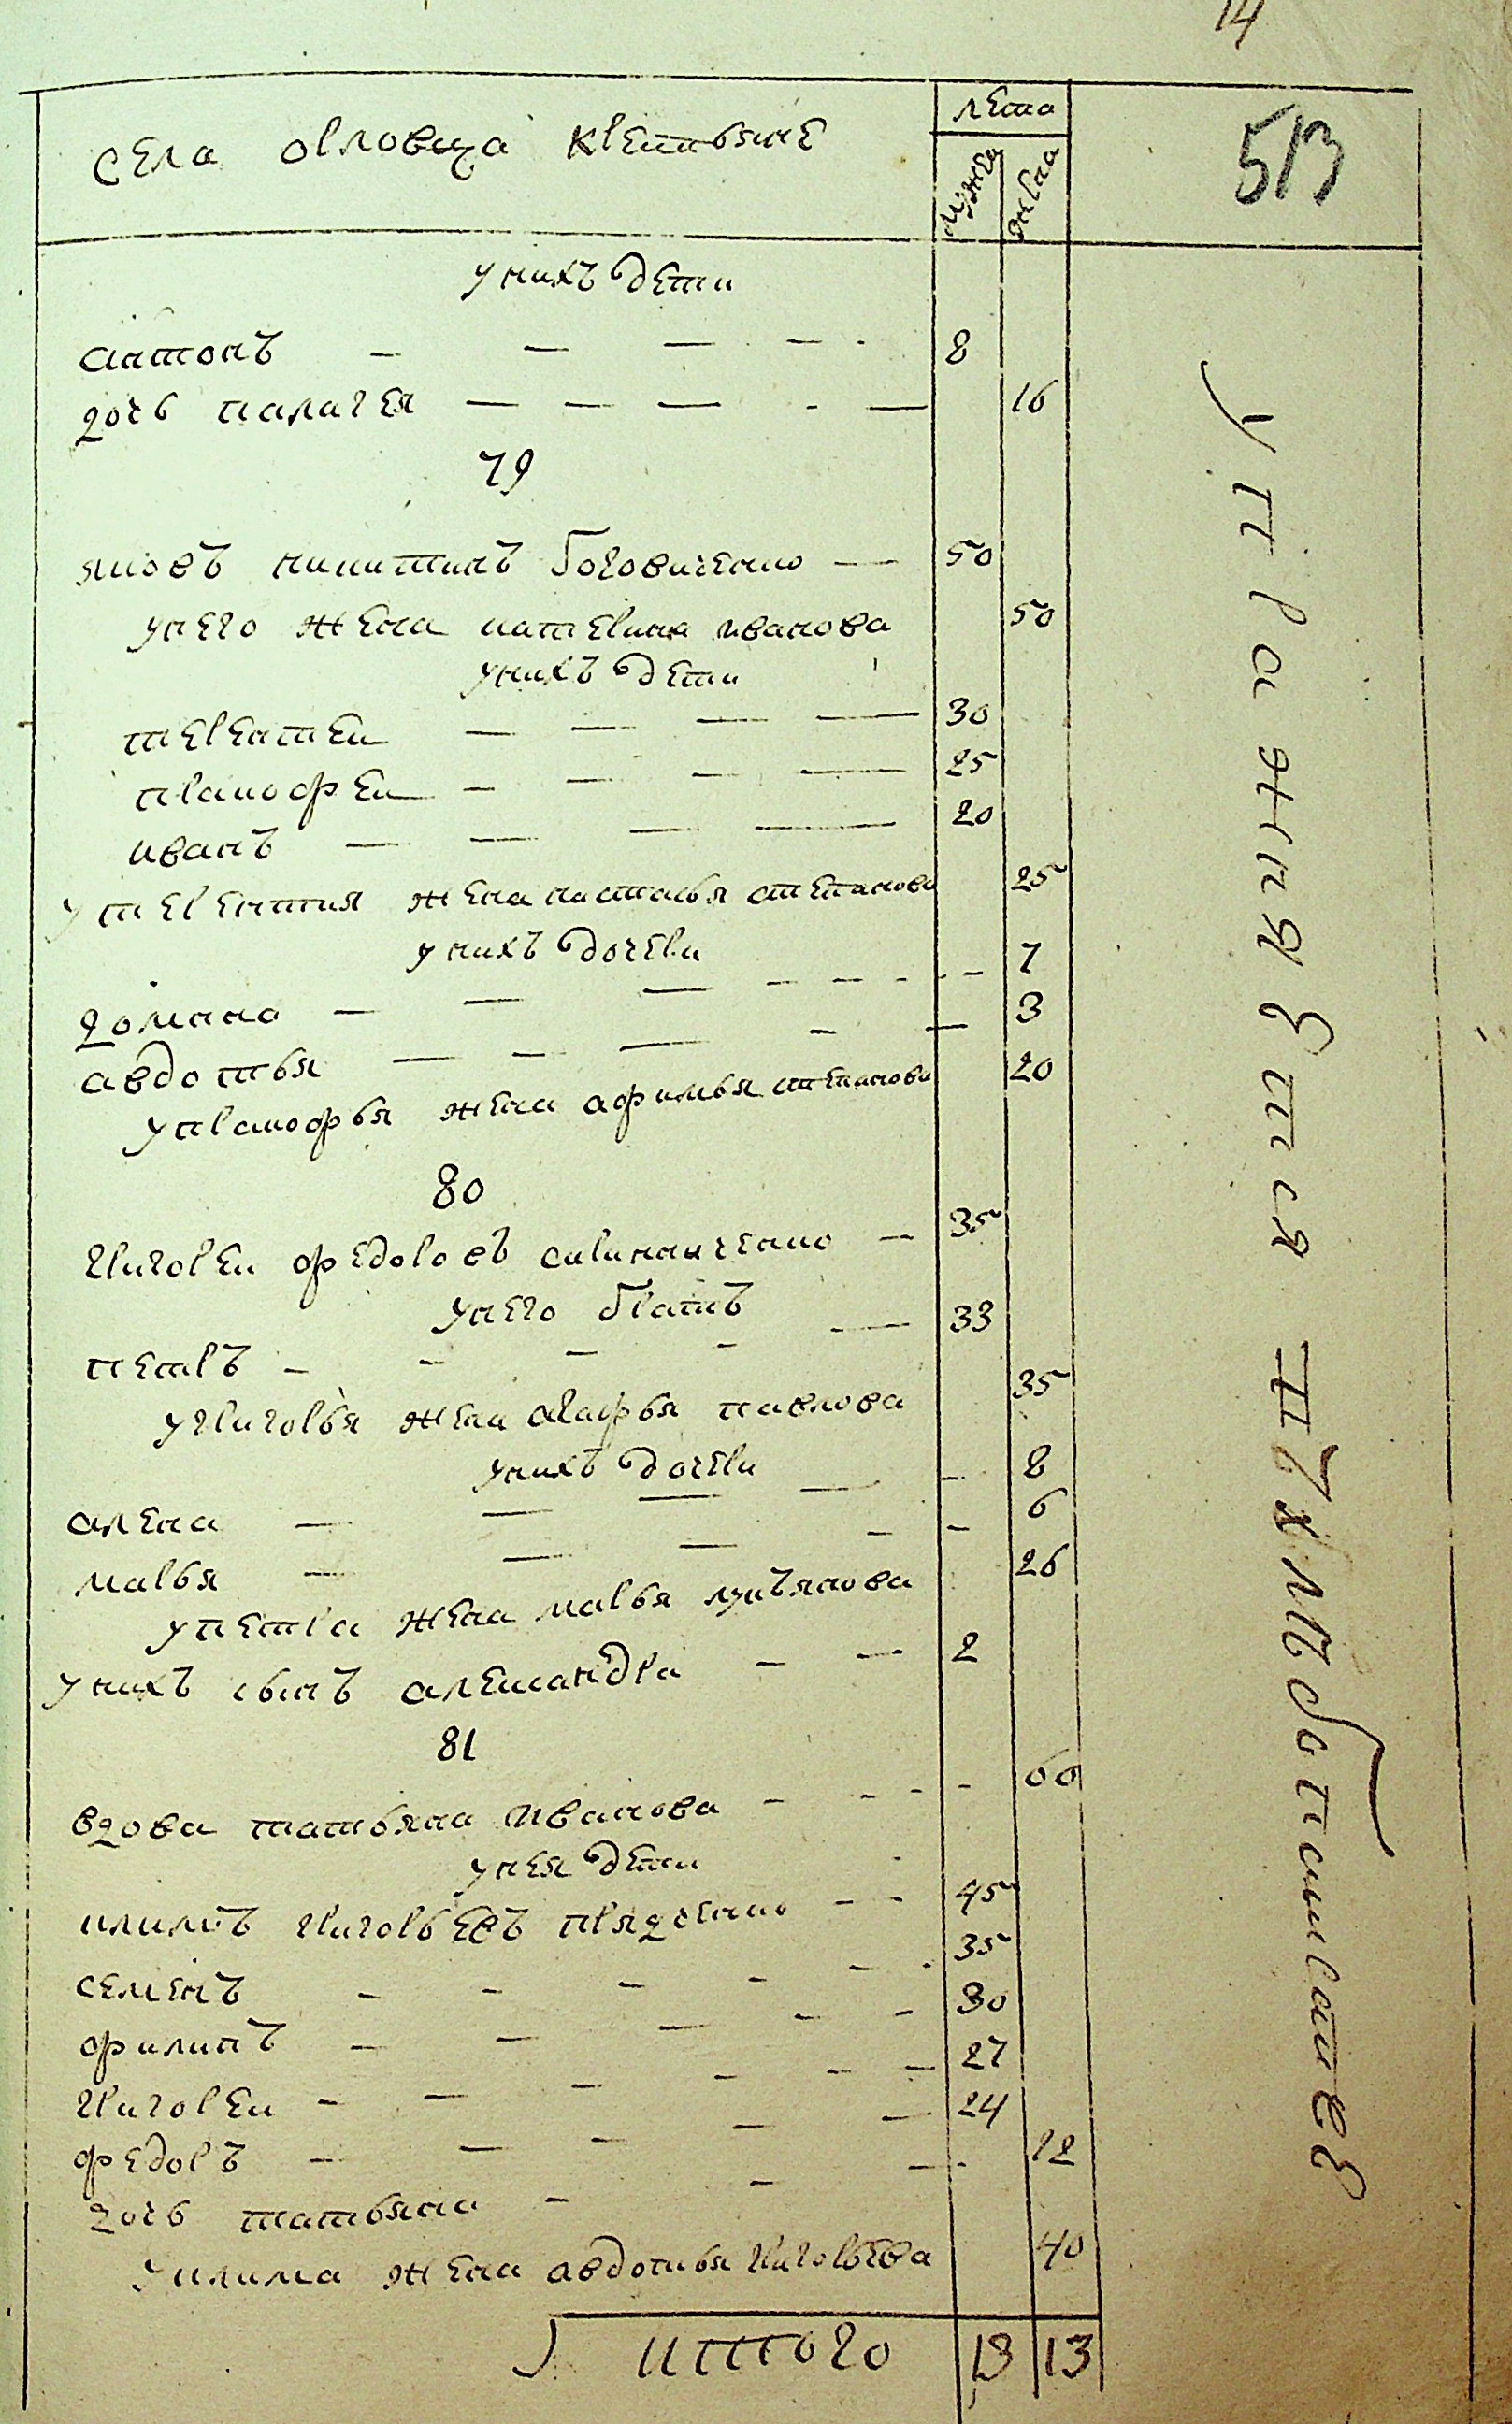 14
села орловца крестьяне
лета
мужеска
женска
513
у них дети
антон 8
дочь палагея 16
79
яков никитин боговиченко 50
у него жена катерина иванова 50
у них дети
терентей 30
пракофей 25
иван 20
у терентия жена наталья степанова 25
у них дочери
домна 7
авдотья 3
у пракофья жена афимья степанова 20
80
григорей федоров 35
у него брат
петр 33
у григорья жена агафья павлова 35
у них дочери
алена 8
марья 6
у петра жена марья лукъянова 26
у них сын александра 2
81
вдова татьяна иванова 60
у нея дети
клим григорьев 45
семен 35
филип 30
григорей 27
федор 24
дочь татьяна 12
у клима жена авдотья григорьева 40
итого 13 13